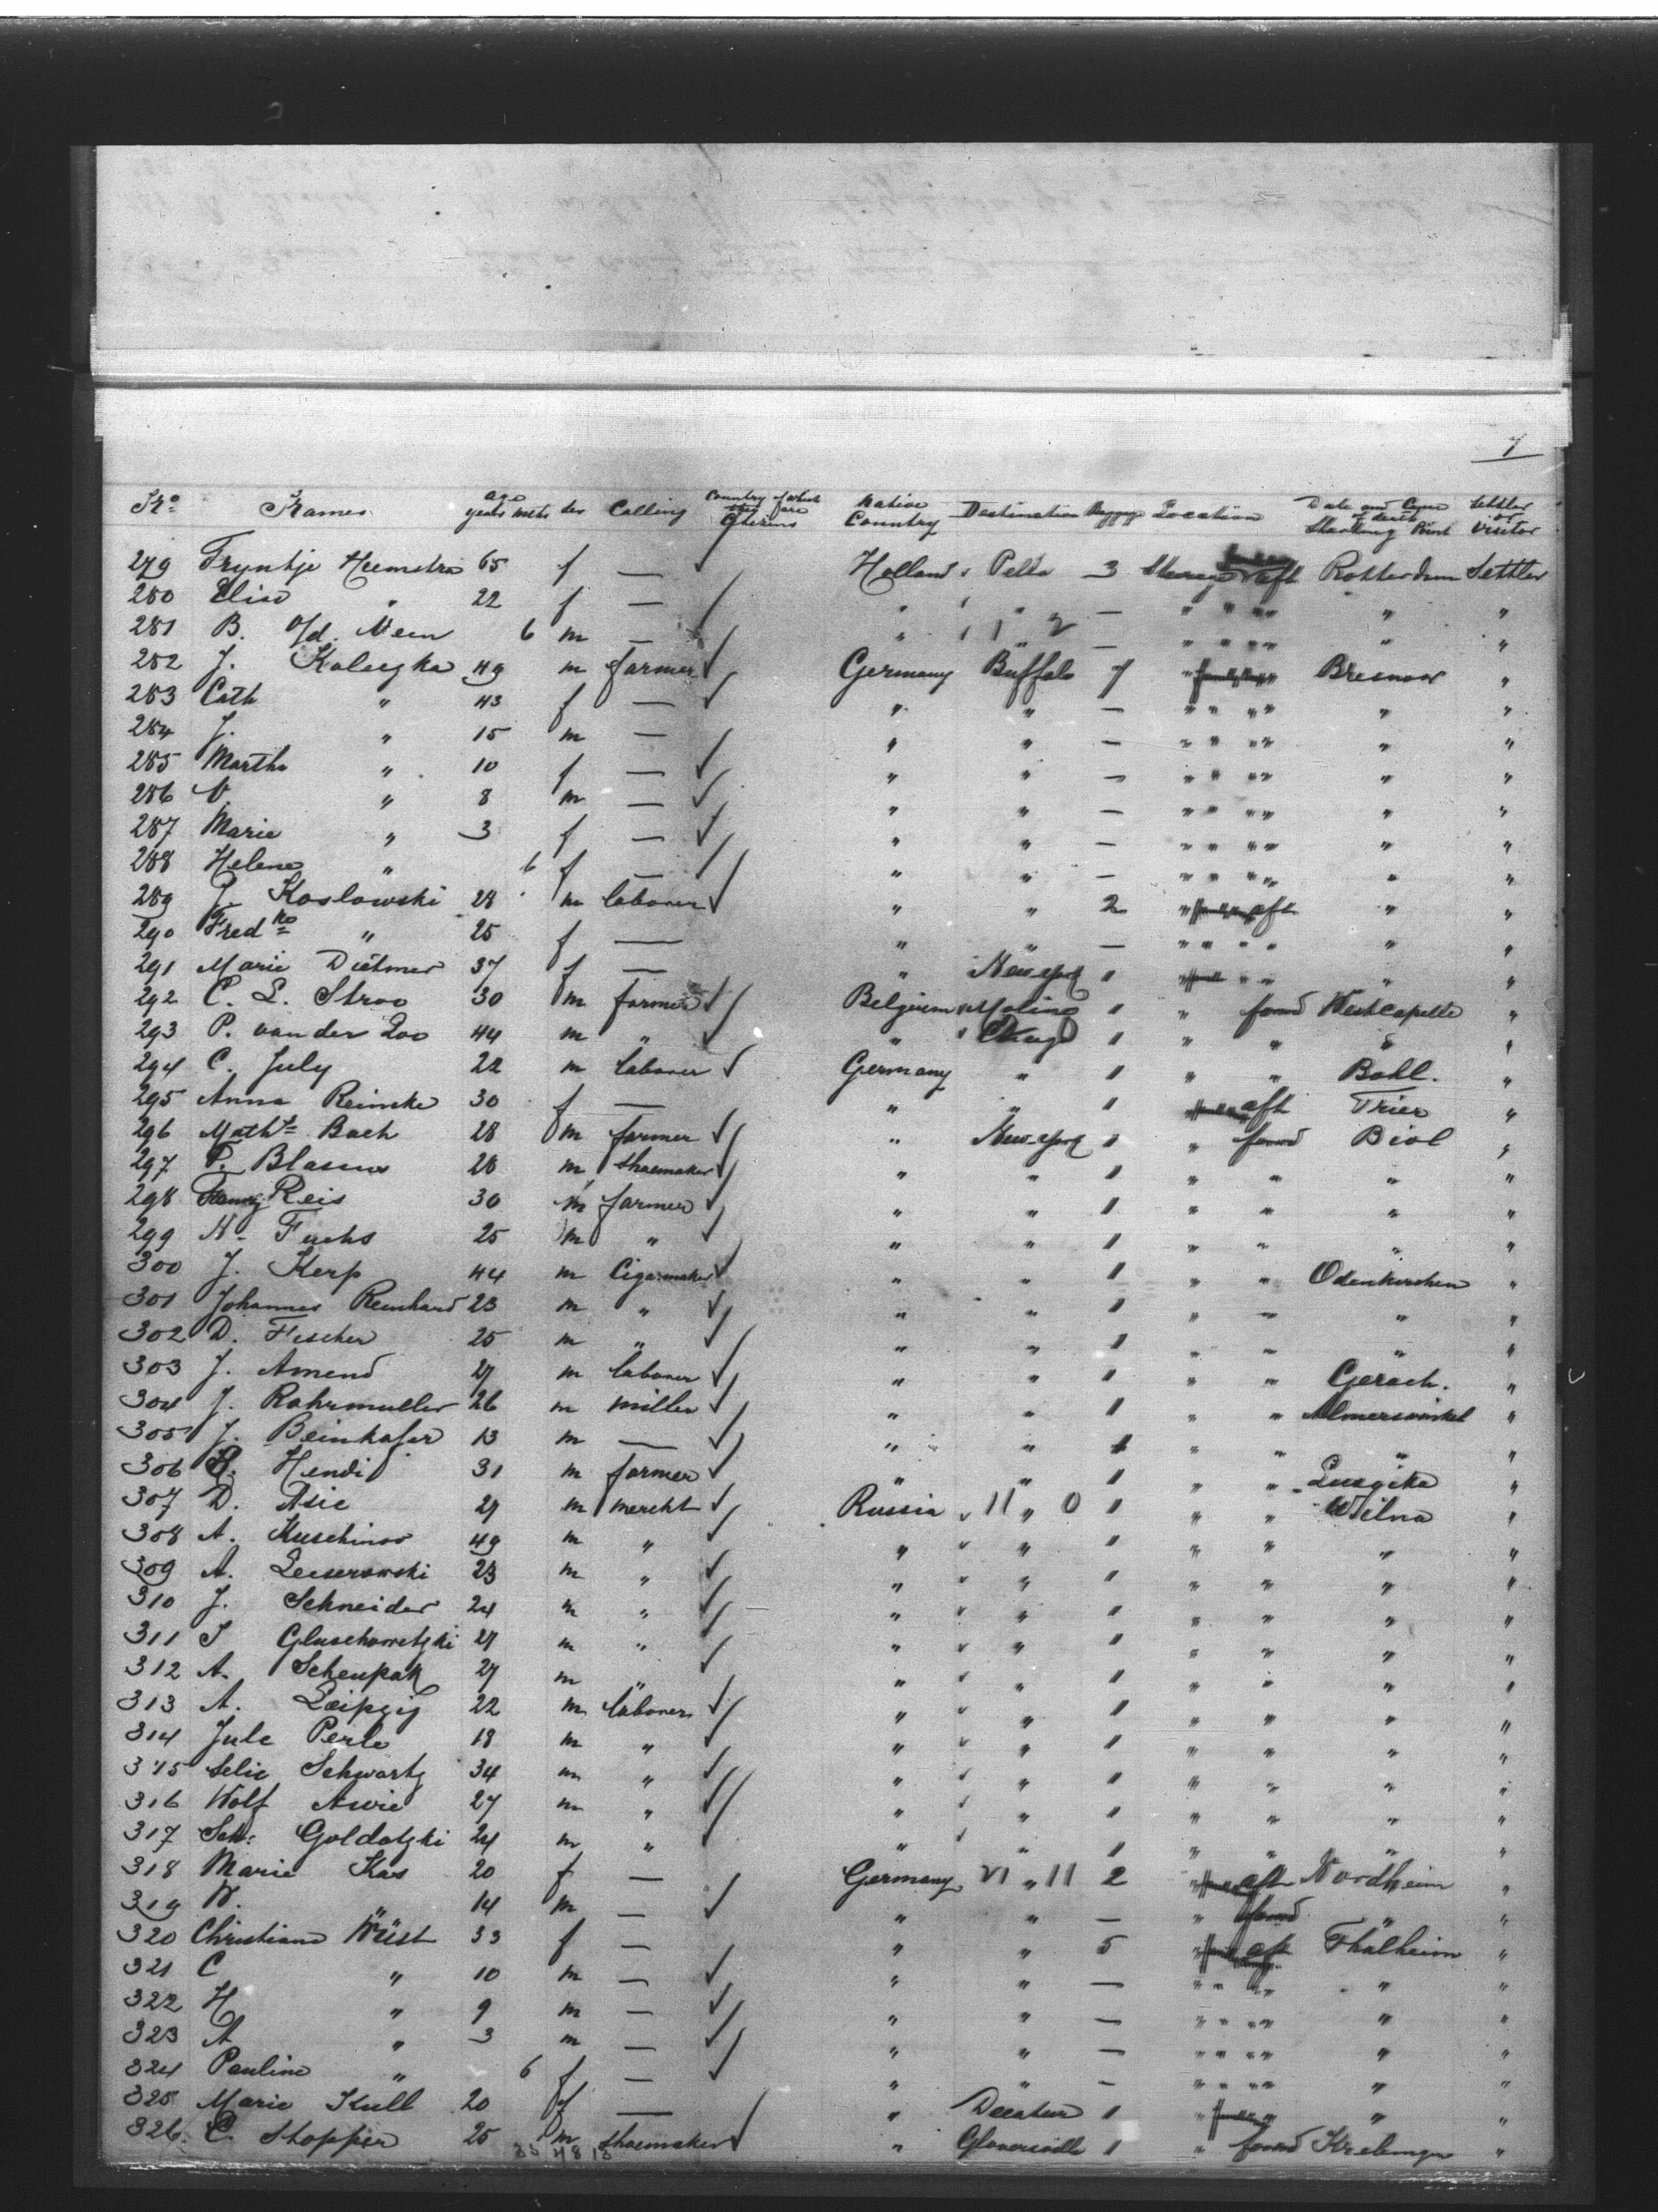 7
No. Names age years mths sex Calling Country of which they are Citizens Native Country Destination Baggage Location Date and Cause of death Starting Point Settler or Visitor
279 Fryntje Heemstra 65 f — Holland Pella 3 Steerage aft Rotterdam Settler
280 Elise " 22 f — " " — " " " " " "
281 B. v/d. Veen 6 m — " " — " " " " " "
282 J. 49 m farmer Germany Buffalo 7 " "
283 Cath " 43 f — " " — " " " " " "
284 J. " 15 m — " " — " " " " " "
285 Martha " 10 f — " " — " " " " " "
286 V. " 8 m — " " — " " " " " "
287 Marie " 3 f — " " — " " " " " "
288 Helene " 6 f — " " — " " " " " "
289 J. Koslowski 28 m laborer " " 2 " aft " "
290 Fredke " 25 f — " " — " " " " " "
291 Marie Dittmer 37 f — " New York 1 " " " " "
292 C. L. Stroo 30 m farmer Belgium Moline 1 " forwd Westcapelle "
293 P. van der Loo 44 m " " Chicago 1 " " " "
294 C. July 22 m laborer Germany " 1 " " Bohl. "
295 Anna Reincke 30 f — " " 1 " aft Trier "
296 Maths Bach 28 m farmer " New York 1 " forwd Biol "
297 P. Blasius 28 m shoemaker " " 1 " " " "
298 Reis 30 m farmer " " 1 " " " "
299 N. Fuchs 25 m " " " 1 " " " "
300 J. Kerp 44 m Cigarmaker " " 1 " " Odenkirchen "
301 Johannes Reinhard 23 m " " " 1 " " " "
302 D. Fischer 25 m " " " 1 " " " "
303 J. Amend 27 m laborer " " 1 " " Gerach. "
304 J. Rohrmuller 26 m miller " " 1 " " "
305 J. Beinhofer 13 m — " " 1 " " " "
306 Hendi 31 m farmer " " 1 " " "
307 D. Asie 27 m mercht Russia 11 " 0 1 " " Wilna "
308 A. Kuschinow 49 m " " " 1 " " " "
309 A. Leiserowski 23 m " " " 1 " " " "
310 J. Schneider 24 m " " " 1 " " " "
311 S Gluschowetzki 27 m " " " 1 " " " "
312 A. Schenpak 27 m " " " 1 " " " "
313 A. Leipzig 22 m laborer " " 1 " " " "
314 Jule Perle 18 m " " " 1 " " " "
315 Selie Schwartz 34 m " " " 1 " " " "
316 Wolf Awie 27 m " " " 1 " " " "
317 Sch: Goldatzki 24 m " " " 1 " " " "
318 Marie Kas 20 f — Germany VI " 11 2 " aft Nordheim "
319 W. " 14 m — " " — " forwd " "
320 Christiane Wüst 33 f — " " 5 " aft Thalheim "
321 C " 10 m — " " — " " " " " "
322 H " 9 m — " " — " " " " " "
323 A " 3 m — " " — " " " " " "
324 Pauline " 6 f — " " — " " " " " "
325 Marie Kull 20 f — " Decatur 1 " " " "
326 C. Stopper 25 m shoemaker " Gloversville 1 " forwd "